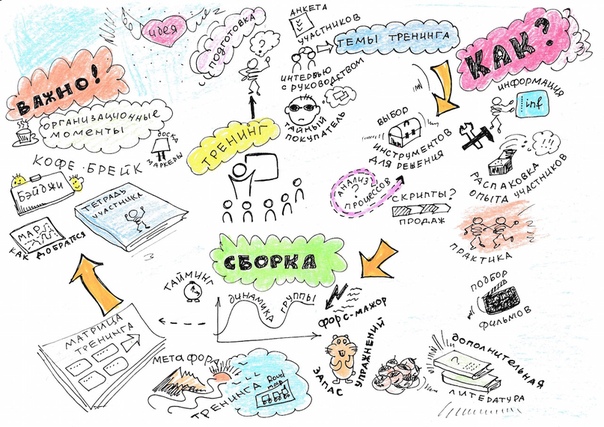 идея
подготовка
анкета
участников
интервью
с руководством
тайный
покупатель
темы тренинга
как?
информация
inf
важно!
организационные
моменты
доска
маркеры
кофе-брейк
бэйджи
тетрадь
участника
мар
как добраться
тренинг
выбор
инструментов
для решения
анализ
?
процессов
скрипты?
продаж
распаковка
опыта участников
практика
подбор
фильмов
сборка
тайминг
динамика
группы
форс-мажор
матрица
тренинга
метафора
тренинга
запас
упражнений
дополнительная
литература